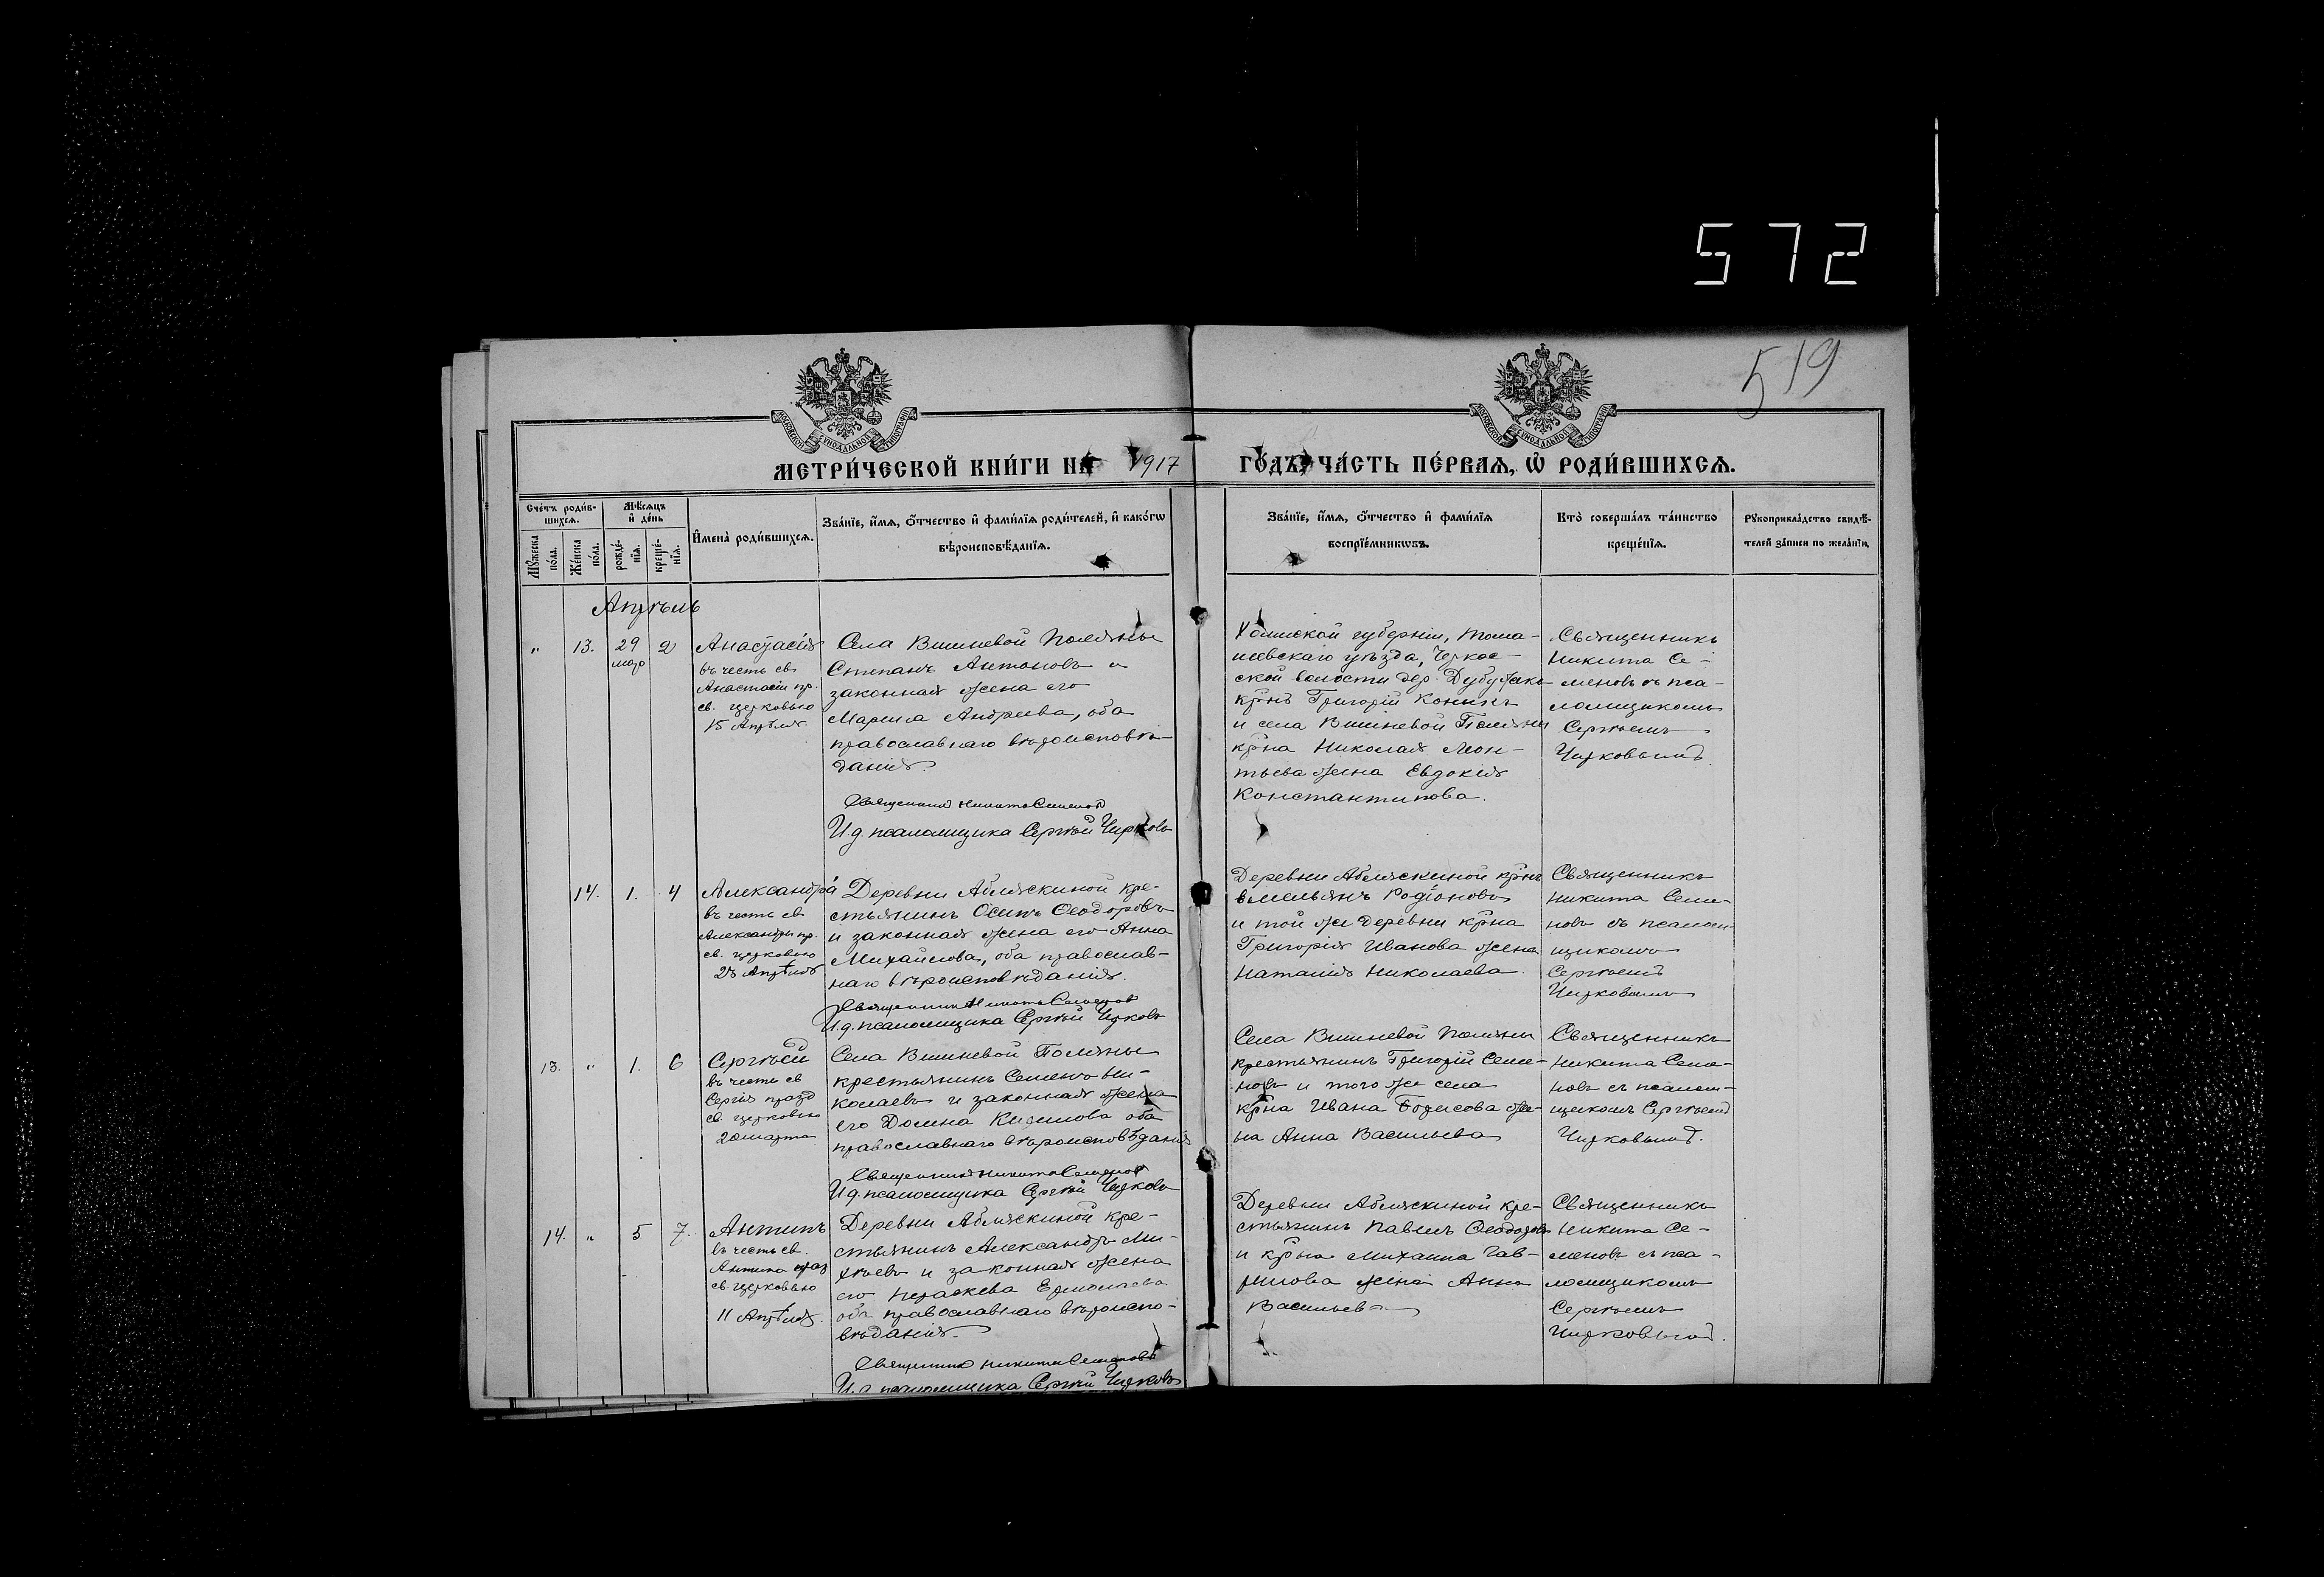 572
519
МЕТРИ́ЧЕСКОЙ КНИ́ГИ НА 1917
ГО́ДЪ, ЧА́СТЬ ПЕ́РВАЯ, Ѡ҆ РОДИ́ВШИХСЯ.
Сче́тъ роди́в-
шихся.
Мѣ́сяцъ
и҆ де́нь
Мꙋ́жеска
по́ла.
Же́нска
по́ла.
рожде́-
нїѧ.
креще́-
нїѧ.
И҆мена̀ роди́вшихся.
Зва́нїе, и҆́мѧ, ѻ҆́тчество и҆ фами́лїѧ роди́телей, и҆ како́гѡ
вѣроисповѣ́данїѧ.
Зва́нїе, и҆́мѧ, ѻ҆́тчество и҆ фами́лїѧ
воспрїе́мникѡвъ.
Кто̀ соверша́лъ та́инство
креще́нїѧ.
Рꙋкоприкла́дство свидѣ́-
телей за́писи по жела́нїю.
Апрѣль
„ 13. 29 2
мар
Анастасія
въ честь св
Анастасіи пр.
св. церковью
15 Апрѣля
Села Вишневой Поляны
Степанъ Антоновъ и
законная жена его
Марина Андреева, оба
православнаго вѣроисповѣ-
данія.
Священникъ Никита Семенов
И д. псаломщика Сергѣй Чирковъ
Холмской губерніи, Тома-
шевскаго уѣзда,
ской волости дер.
крнъ Григорій
и села Вишневой Поляны
крна Николая Леон-
тьева жена Евдокія
Константинова.
Священникъ
Никита Се-
меновъ съ пса-
ломщикомъ
Сергѣемъ
Чирковымъ.
14. 1. 4
Александра
въ честь св
Александры пр.
св. церковью
23 Апрѣля
Деревни Абляскиной кре-
стьянинъ Осипъ Ѳеодоровъ
и законная жена его Анна
Михайлова, оба православ-
наго вѣроисповѣданія.
Священникъ Никита Семенов
И.д. псаломщика Сергѣй Чирковъ
Деревни Абляскиной крнъ
Емельянъ Родіоновъ
и той же деревни крна
Григорія Иванова жена
Наталія Николаева.
Священникъ
Никита Семе-
новъ съ псалом-
щикомъ
Сергѣемъ
Чирковымъ
13. „ 1. 6
Сергѣй
въ честь св
Сергія празд
св. церковью
20 марта
Села Вишневой Поляны
крестьянинъ Семенъ Ни-
колаевъ и законная жена
его Домна Кирилова оба
православнаго вѣроисповѣданія
Священникъ Никита Семенов
И д. псаломщика Сергѣй Чирковъ
Села Вишневой Поляны
крестьянинъ Григорій Семе-
новъ и того же села
крна Ивана Борисова же-
на Анна Васильева
Священникъ
Никита Семе-
новъ съ псалом-
щикомъ Сергѣемъ
Чирковымъ.
14. „ 5 7.
Антипъ
въ честь св.
Антипа праз
св церковью
11 Апрѣля.
Деревни Абляскиной кре-
стьянинъ Александръ Ми-
хѣевъ и законная жена
его Параскева Ермолаева
оба православнаго вѣроиспо-
вѣданія.
Священникъ Никита Семенов
И.д. псаломщика Сергѣй Чирковъ
Деревни Абляскиной кре-
стьянинъ Павелъ Ѳеодоровъ
и крна Михаила Гав-
рилова жена Анна
Васильева
Священникъ
Никита Се-
меновъ съ пса-
ломщикомъ
Сергѣемъ
Чирковымъ.